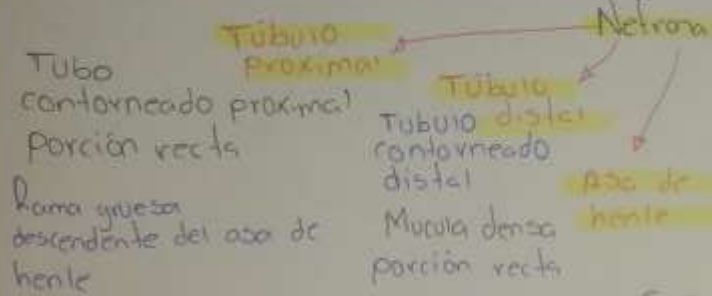 Nefrona
Túbulo
proximal
Tubo
contorneado proximal
Porción recta
Rama gruesa
descendente del asa de
henle
Túbulo
distal
Tubulo
contorneado
distal
Mucula densa
porción recta
Asa de
henle